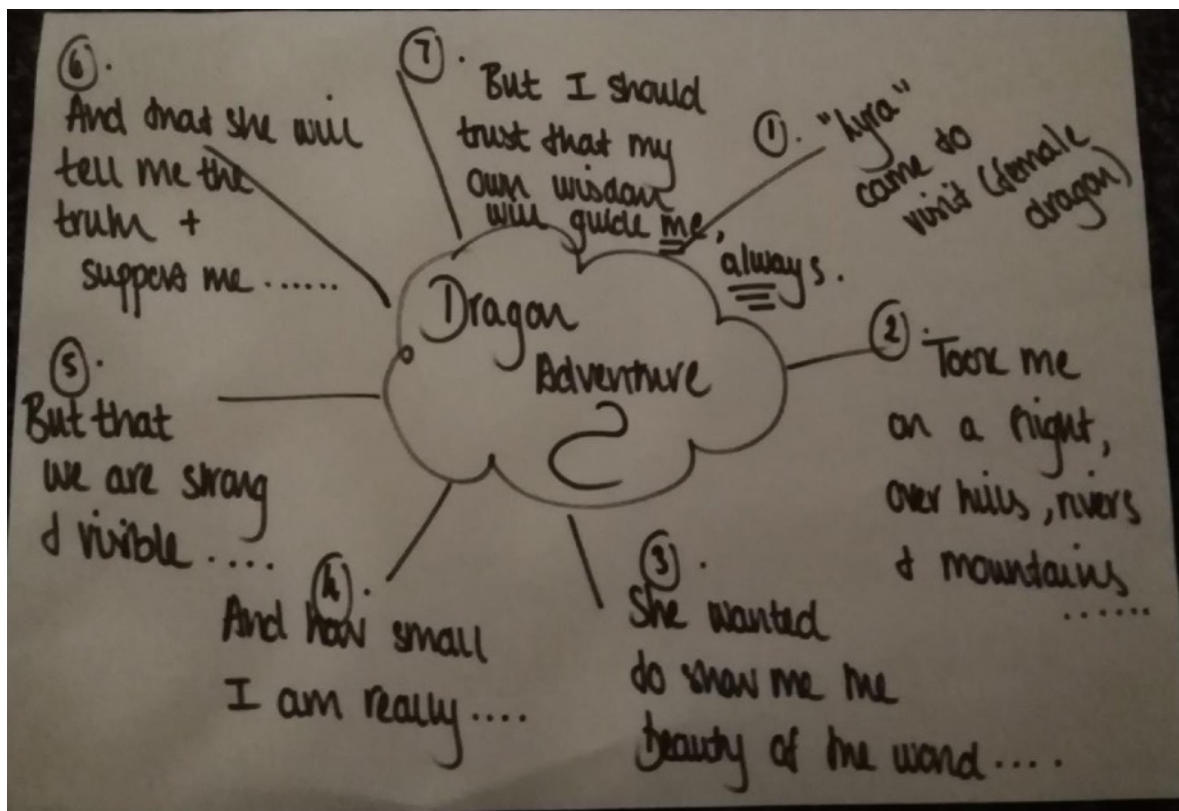 Dragon
Adventure
①. "Lyra"
came to
visit (female
dragon)
②. Took me
on a flight,
over hills, rivers
& mountains
......
③.
She wanted
to show me the
beauty of the world ....
④.
And how small
I am really ....
⑤.
But that
we are strong
& visible ....
⑥.
And that she will
tell me the
truth +
support me ......
⑦.
But I should
trust that my
own wisdom
will guide me,
always.